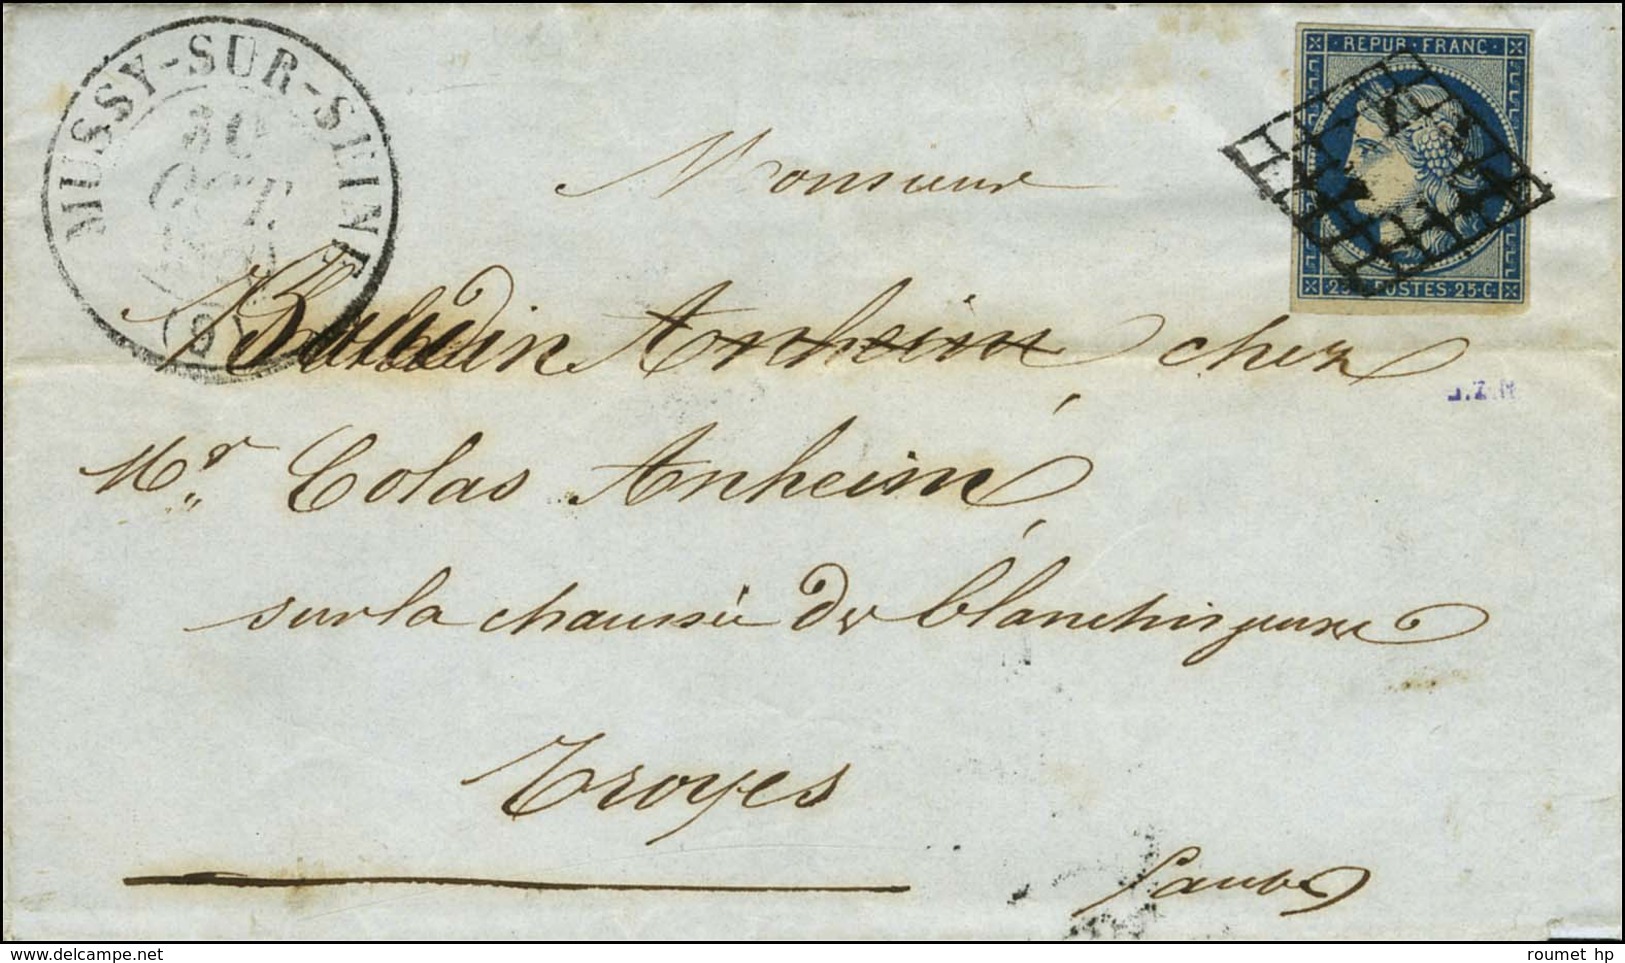 MUSSY-SUR-SEINE
30
OCT.
(9)
REPUB. FRANC.
25 C POSTES 25 C
Monsieur
Baudin Anheim chez
Mr Colas Anheim
sur la chaussée de blanchisseuse
Troyes
l'aube
roumet hp